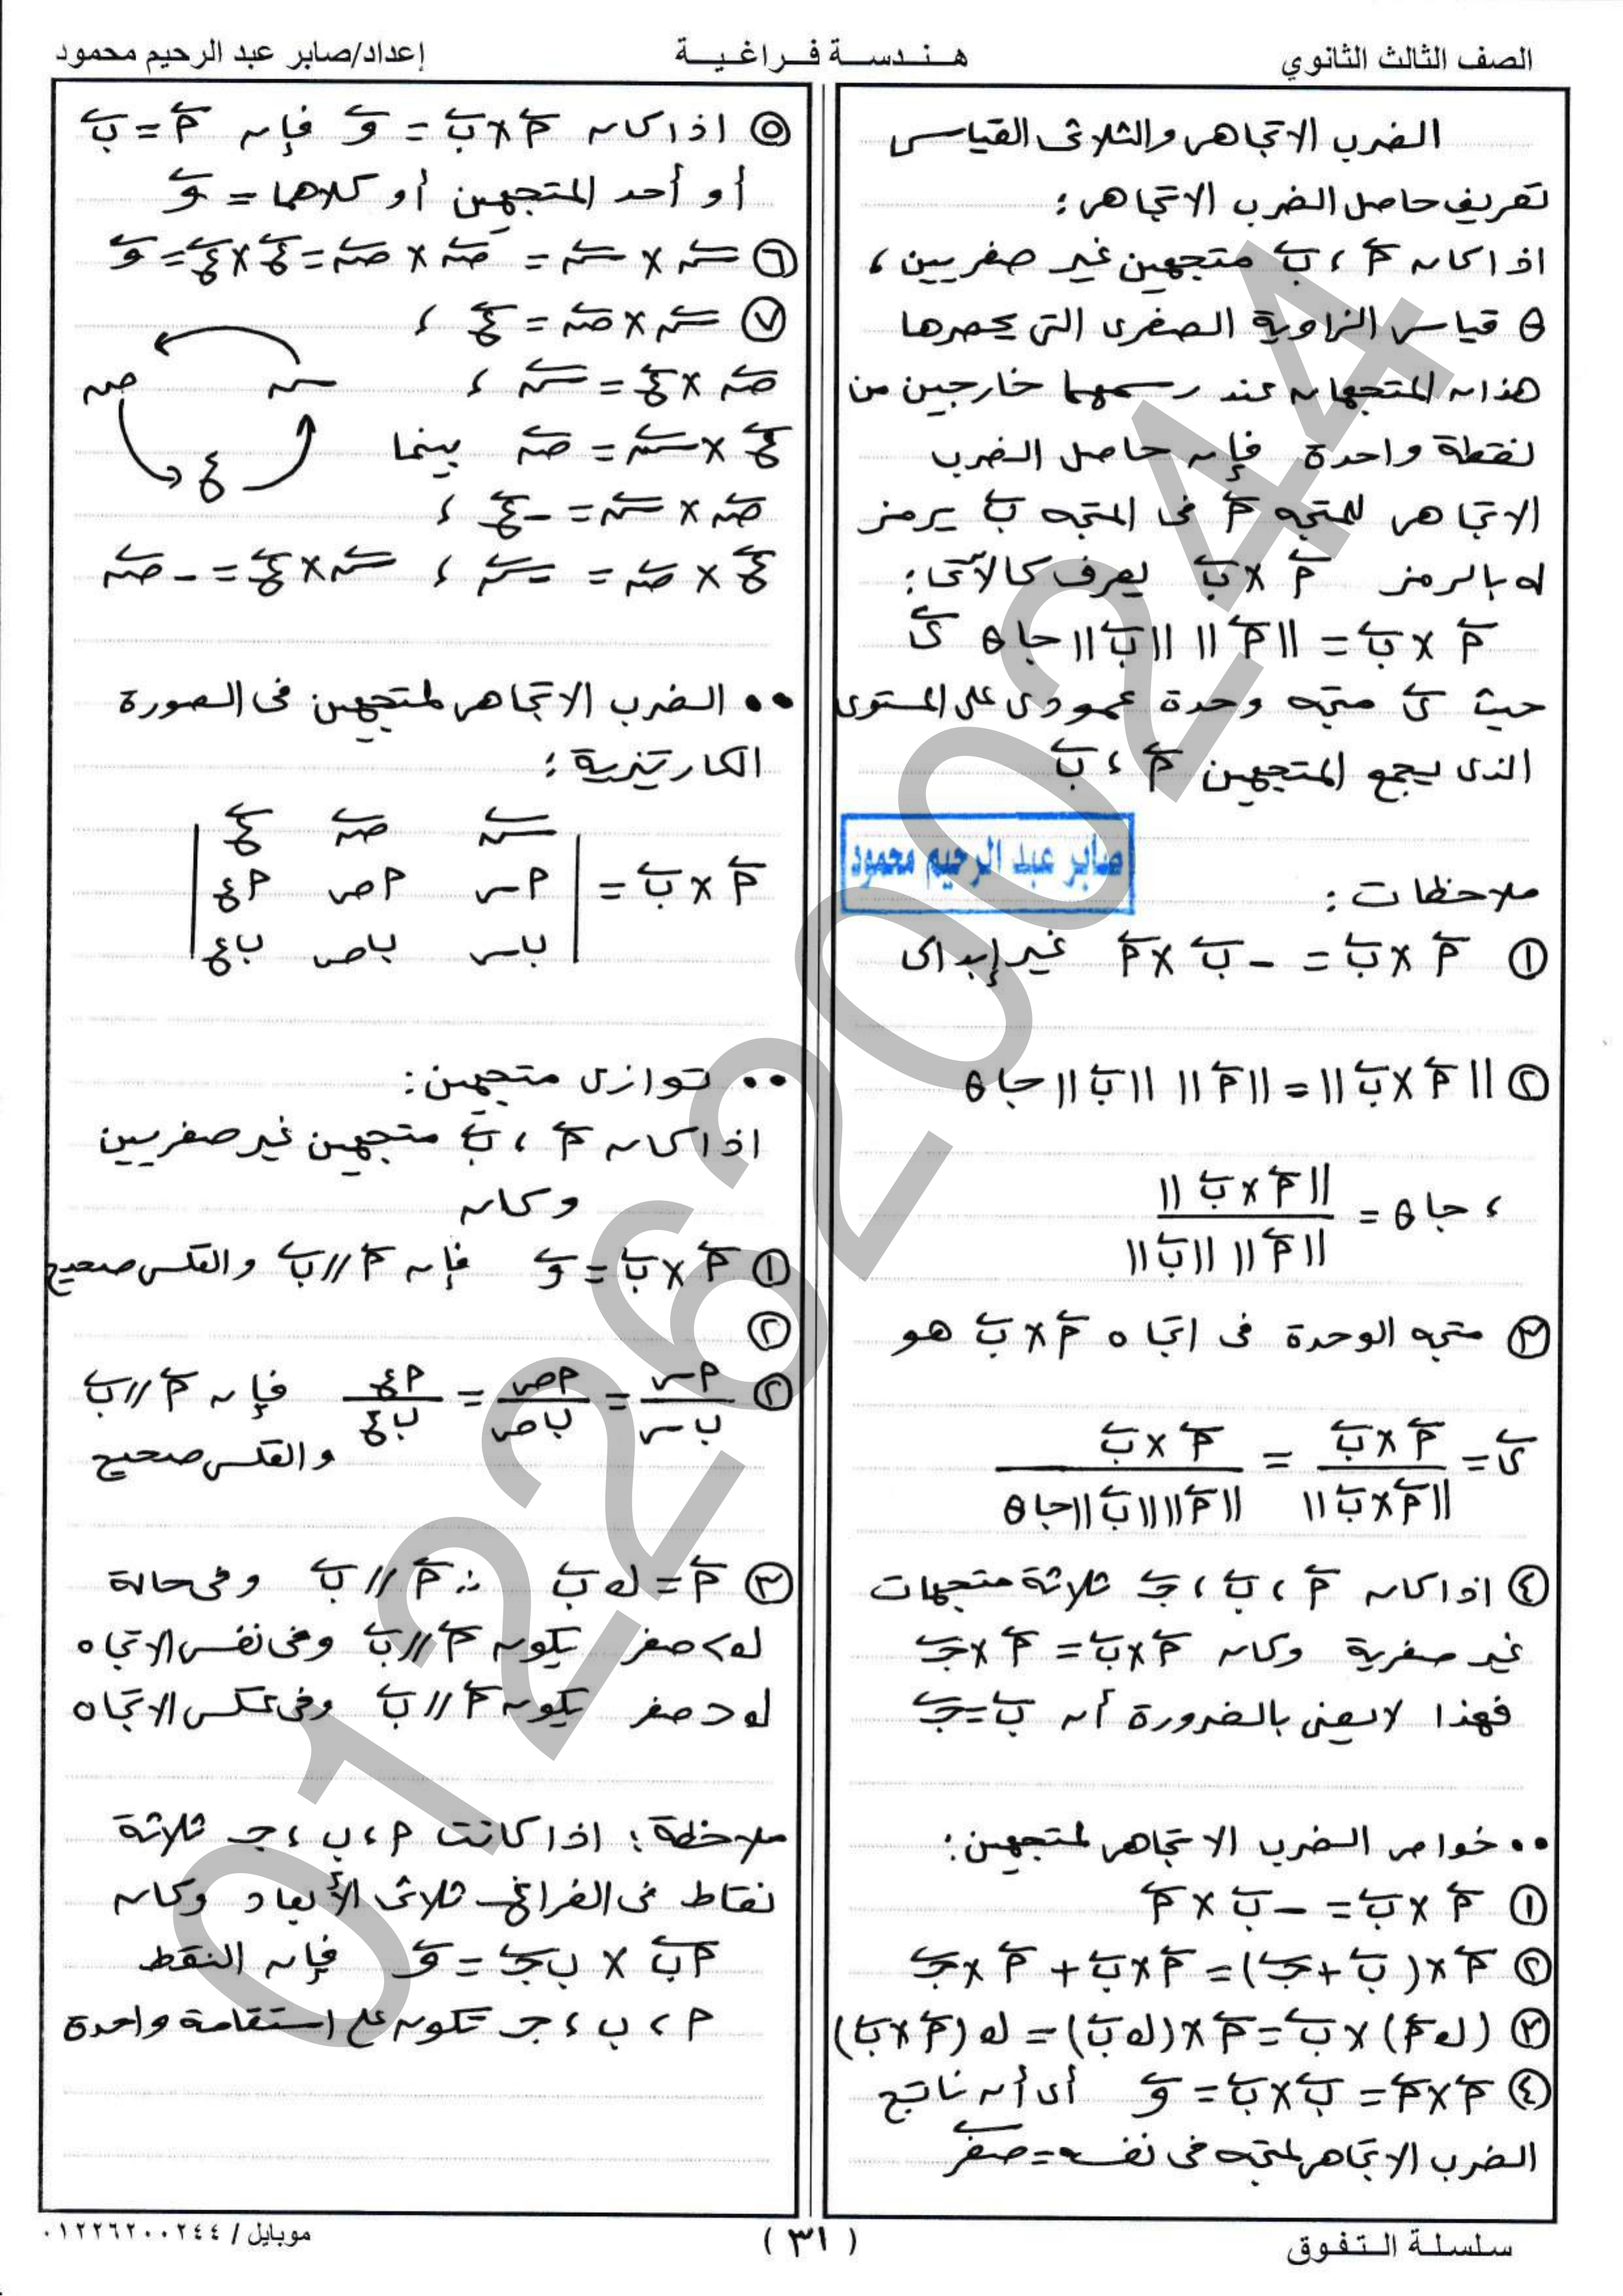 الصف الثالث الثانوي
هندسة فراغية
إعداد/صابر عبد الرحيم محمود
الضرب الاتجاهى والثلاثى القياسى
تعريف حاصل الضرب الاتجاهى :
اذا كان أَ ، بَ متجهين غير صفريين ،
θ قياس الزاوية الصغرى التى يحصرها
هذان المتجهان عند رسمهما خارجين من
نقطة واحدة فإن حاصل الضرب
الاتجاهى للمتجه أَ فى المتجه بَ يرمز
له بالرمز أَ × بَ يعرف كالآتى :
أَ × بَ = ||أَ|| ||بَ|| جا θ ىَ
حيث ىَ متجه وحدة عمودى على المستوى
الذى يجمع المتجهين أَ ، بَ
صابر عبد الرحيم محمود
ملاحظات :
① أَ × بَ = - بَ × أَ غير إبدالى
② ||أَ × بَ|| = ||أَ|| ||بَ|| جا θ
، جا θ = ||أَ × بَ|| / ||أَ|| ||بَ||
③ متجه الوحدة فى اتجاه أَ × بَ هو
ىَ = أَ × بَ / ||أَ × بَ|| = أَ × بَ / ||أَ|| ||بَ|| جا θ
④ اذا كان أَ ، بَ ، جـَ ثلاثة متجهات
غير صفرية وكان أَ × بَ = أَ × جـَ
فهذا لا يعنى بالضرورة أن بَ = جـَ
•• خواص الضرب الاتجاهى لمتجهين :
① أَ × بَ = - بَ × أَ
② أَ × (بَ + جـَ) = أَ × بَ + أَ × جـَ
③ (ك أَ) × بَ = أَ × (ك بَ) = ك (أَ × بَ)
④ أَ × أَ = بَ × بَ = وَ أى أن ناتج
الضرب الاتجاهى لمتجه فى نفسه = صفرَ
⑤ اذا كان أَ × بَ = وَ فإن أَ = بَ
أو أحد المتجهين أو كلاهما = وَ
⑥ سَ × سَ = صَ × صَ = عَ × عَ = وَ
⑦ سَ × صَ = عَ ،
صَ × عَ = سَ ،
س ص
عَ × سَ = صَ بينما
ع
صَ × سَ = - عَ ،
عَ × صَ = - سَ ، سَ × عَ = - صَ
•• الضرب الاتجاهى لمتجهين فى الصورة
الكارتيزية :
سَ صَ عَ
أَ × بَ = | أس أص أع |
| بس بص بع |
•• توازى متجهين :
اذا كان أَ ، بَ متجهين غير صفريين
وكان
① أَ × بَ = وَ فإن أَ // بَ والعكس صحيح
②
② أس / بس = أص / بص = أع / بع فإن أَ // بَ
والعكس صحيح
③ أَ = ك بَ ∴ أَ // بَ وفى حالة
ك > صفر يكون أَ // بَ وفى نفس الاتجاه
ك < صفر يكون أَ // بَ وفى عكس الاتجاه
ملاحظة : اذا كانت أ ، ب ، جـ ثلاثة
نقاط فى الفراغ ثلاثى الأبعاد وكان
أبَ × ب جـَ = وَ فإن النقط
أ ، ب ، جـ تكون على استقامة واحدة
سلسلة التفوق
( ٣١ )
موبايل / ٠١٢٢٦٢٠٠٢٤٤
01226200244